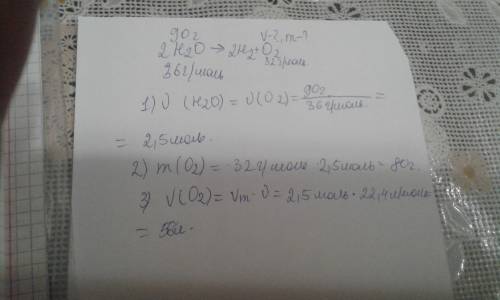 90г V-?, m-?
2H2O → 2H2+O2
36г/моль 32г/моль
1) ν (H2O) = ν(O2) = 90г/36г/моль =
= 2,5моль.
2) m(O2) = 32г/моль · 2,5моль = 80г.
3) V(O2) = Vm · ν = 2,5моль · 22,4л/моль
= 56л.